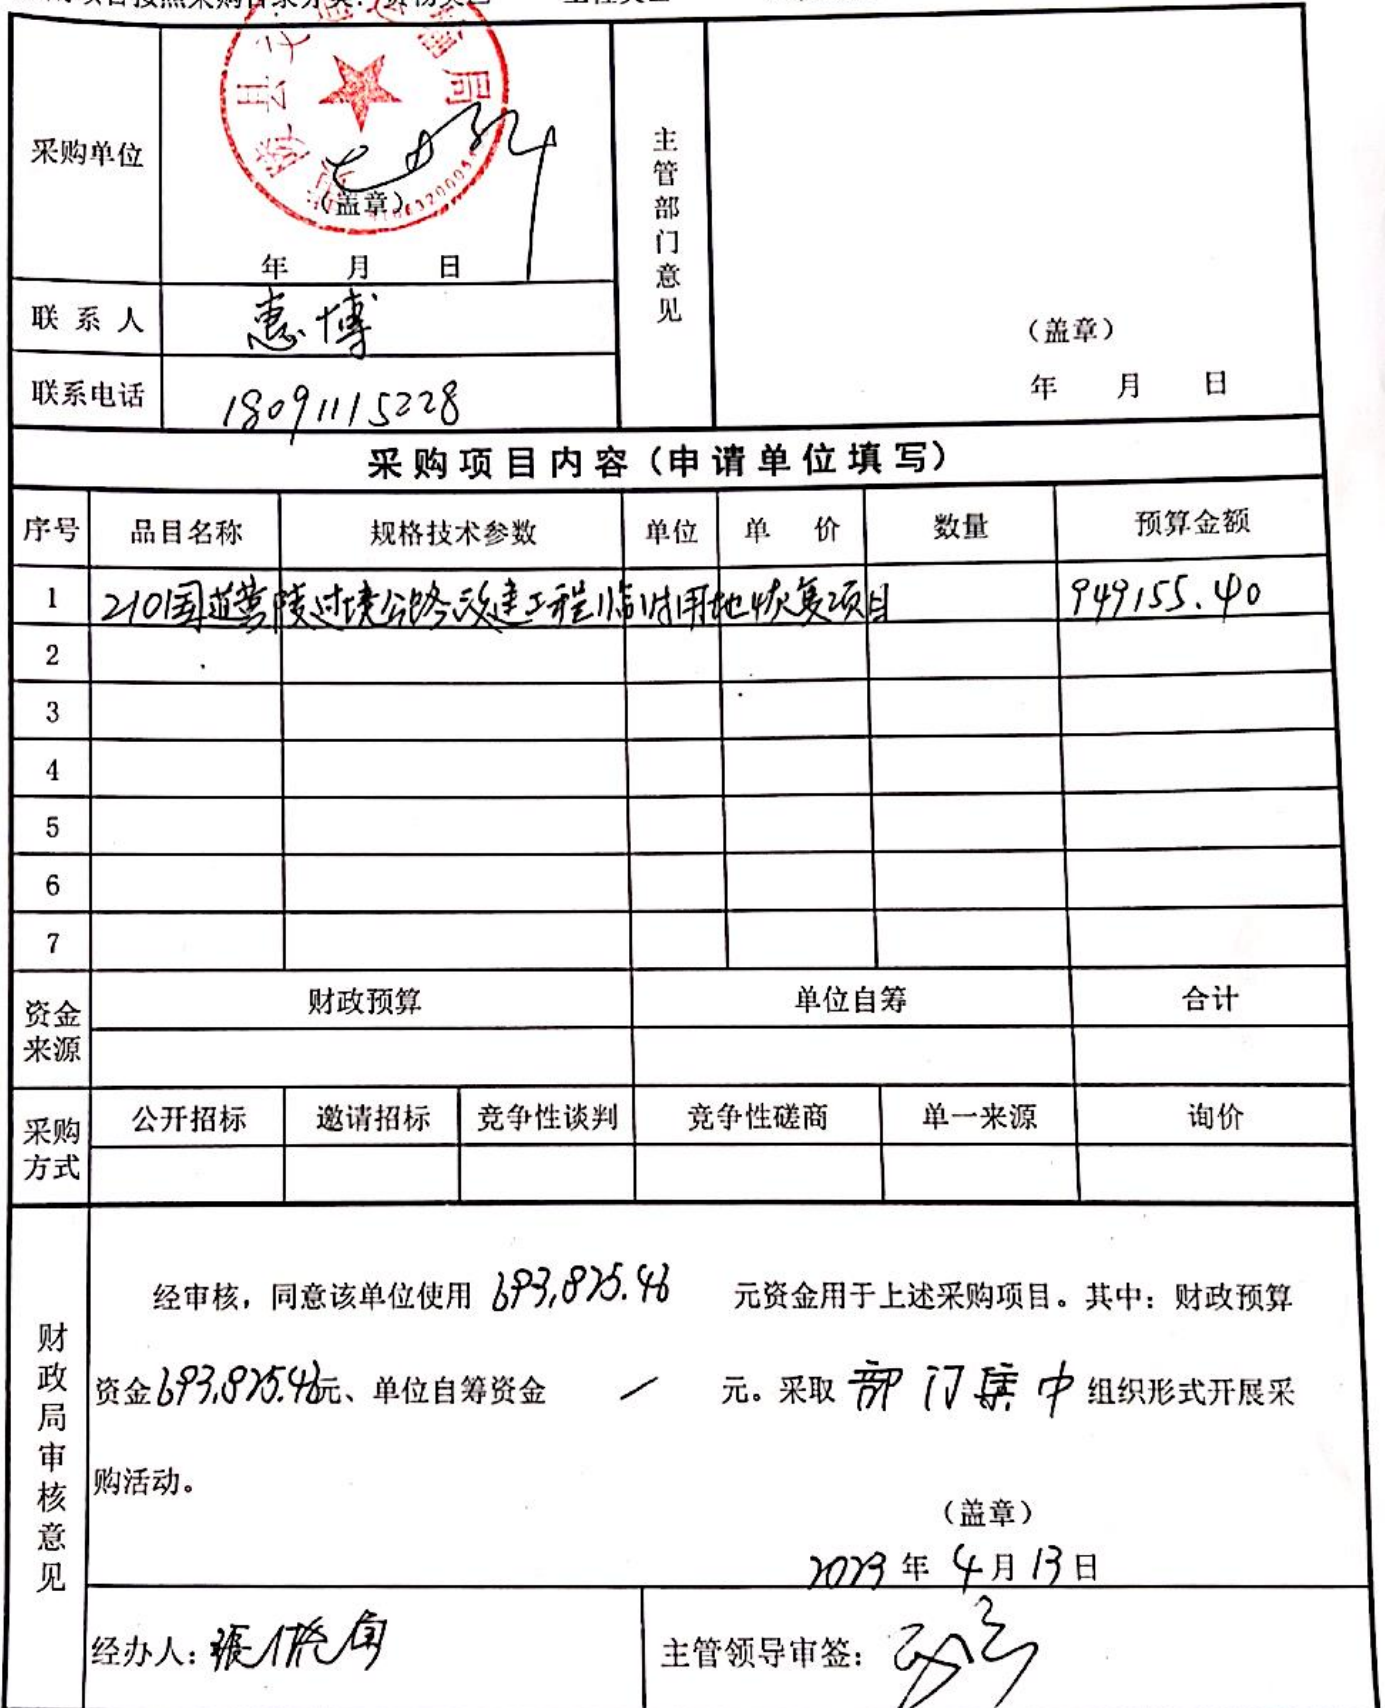 项目按照采购目录分类：货物类
采购单位
（盖章）
年 月 日
主管部门意见
（盖章）
年 月 日
联系人 惠博
联系电话 18091115228
采购项目内容（申请单位填写）
序号 品目名称 规格技术参数 单位 单价 数量 预算金额
1 210国道黄陵过境公路改建工程临时用地恢复项目 949155.40
2
3
4
5
6
7
资金来源 财政预算 单位自筹 合计
采购方式 公开招标 邀请招标 竞争性谈判 竞争性磋商 单一来源 询价
财政局审核意见
经审核，同意该单位使用 693,825.46 元资金用于上述采购项目。其中：财政预算
资金693,825.46元、单位自筹资金 / 元。采取 部门集中 组织形式开展采
购活动。
（盖章）
2023年4月13日
经办人：张
主管领导审签：